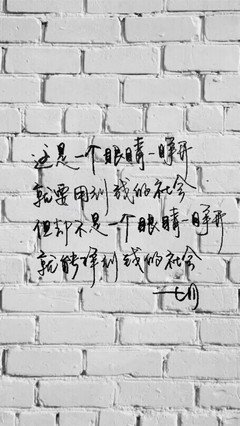 这是一个眼睛一睁开
就要用到钱的社会
但却不是一个眼睛一睁开
就能得到钱的社会